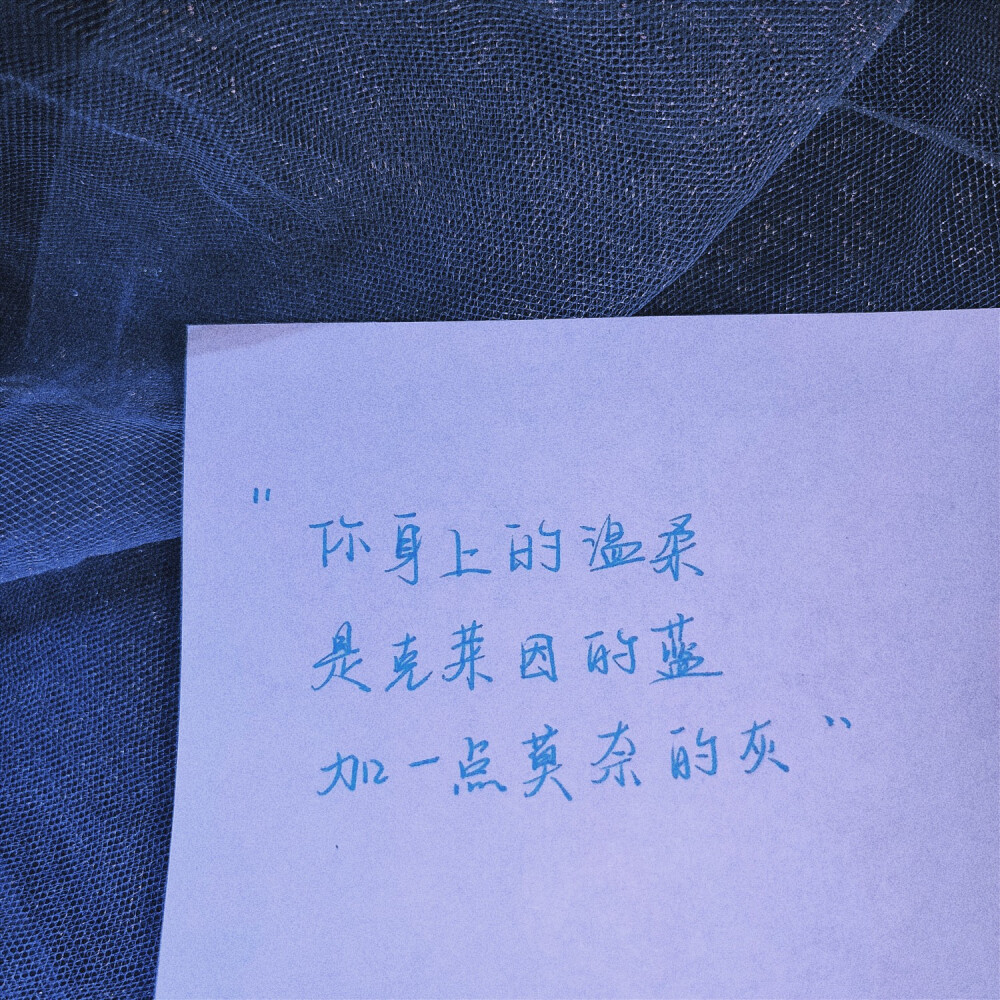 "你身上的温柔
是克莱因的蓝
加一点莫奈的灰"